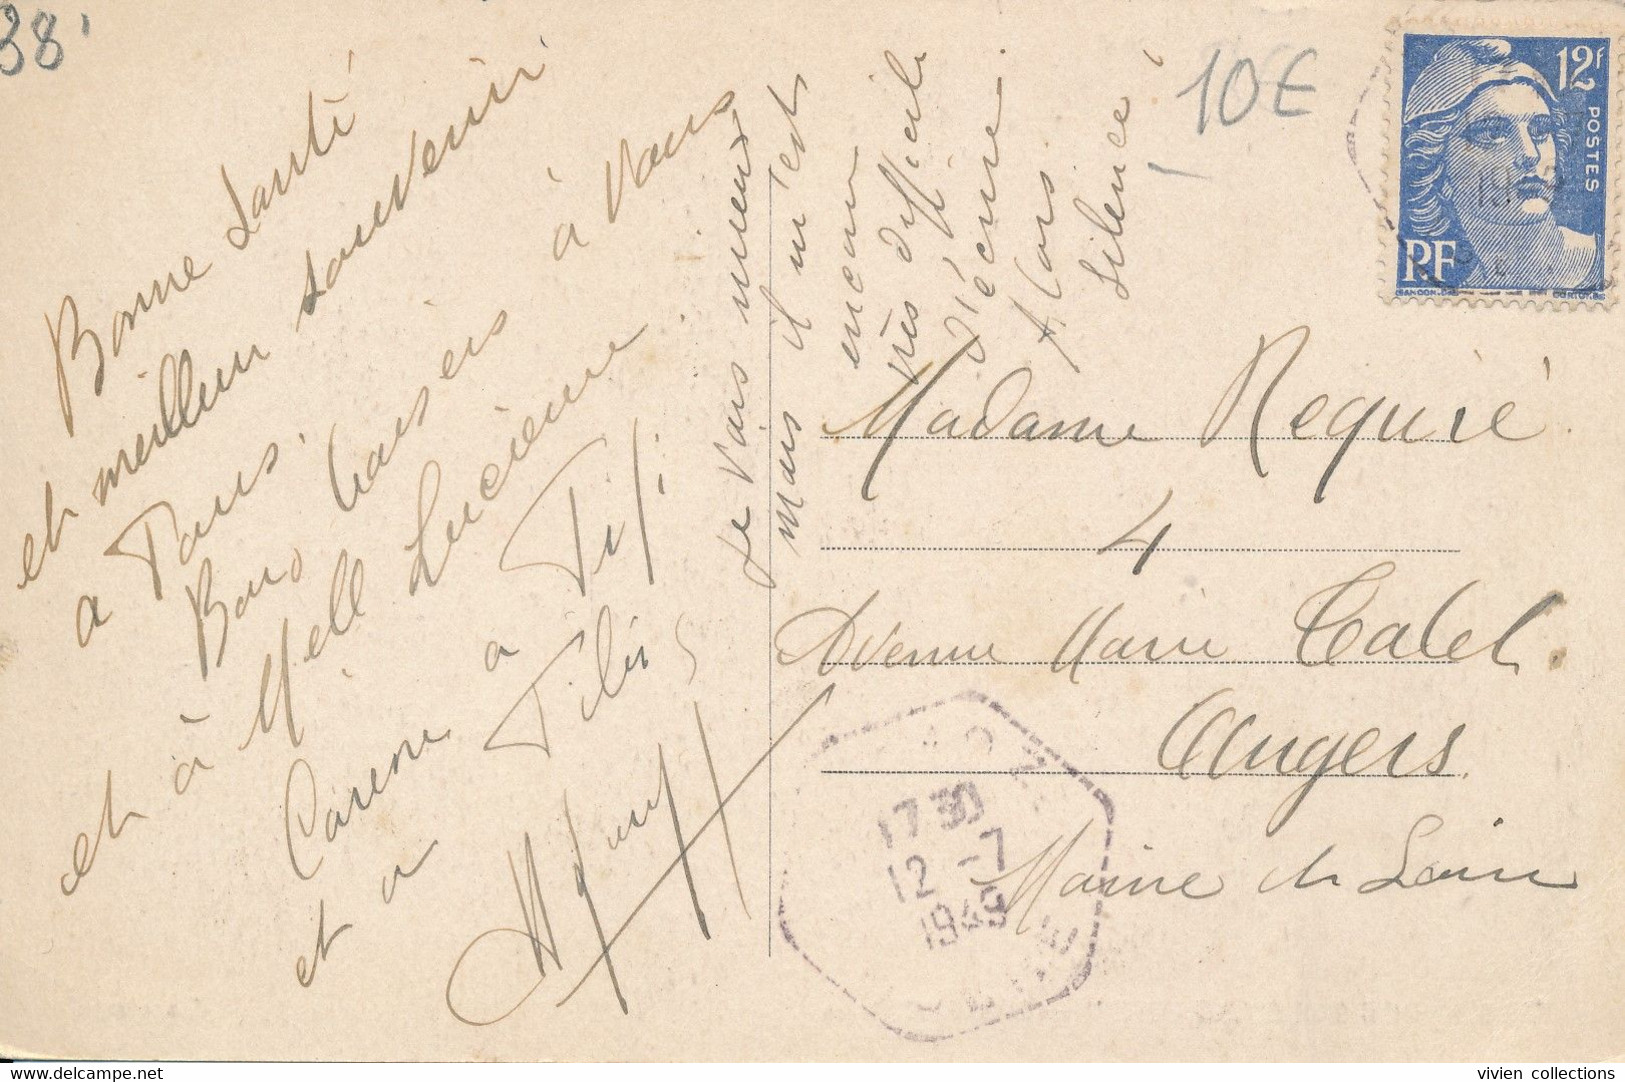 38
Bonne Santé
et meilleur souvenir
a Tous.
Bons baisers à vous
et à Melle Lucienne.
Carine a Fifi
et a
Je vais mieux
mais il m'est
encore
très difficile
d'écrire.
Alors
silence!
10€
12F
POSTES
RF
GANDON
Madame Requiré
4
Avenue Marie Talet.
Angers
Maine et Loire
17 30
12 -7
1949
vivien collections